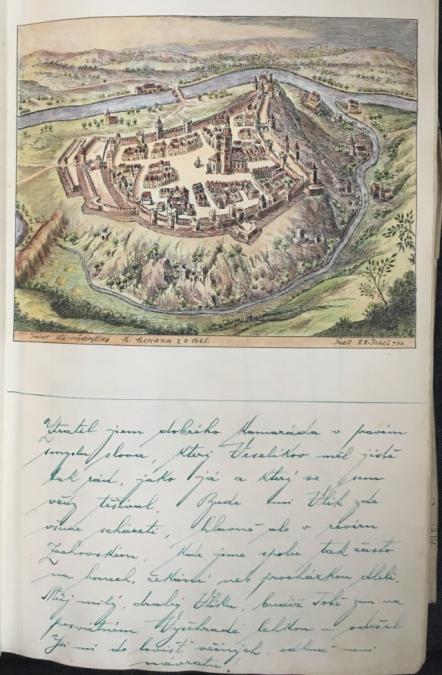 Tabor dle mědirytiny M. Meriana z r. 1665.
Ztratil jsem dobrého kamaráda v pravém
smyslu slova, který Veselíčkov měl jistě
tak rád, jako já a který se sem
vždy těšíval. Bude mi Vlk zde
všude scházeti, hlavně ale v revíru
Zachovském, kde jsme spolu tak často
na honech, čekání, neb procházkou dleli.
Můj milý, drahý Vlku, budiž Tobě zem na
posvátném Vyšehradě lehkou – odešel
Jsi mi do lovišť věčných, odkud není
návratu!